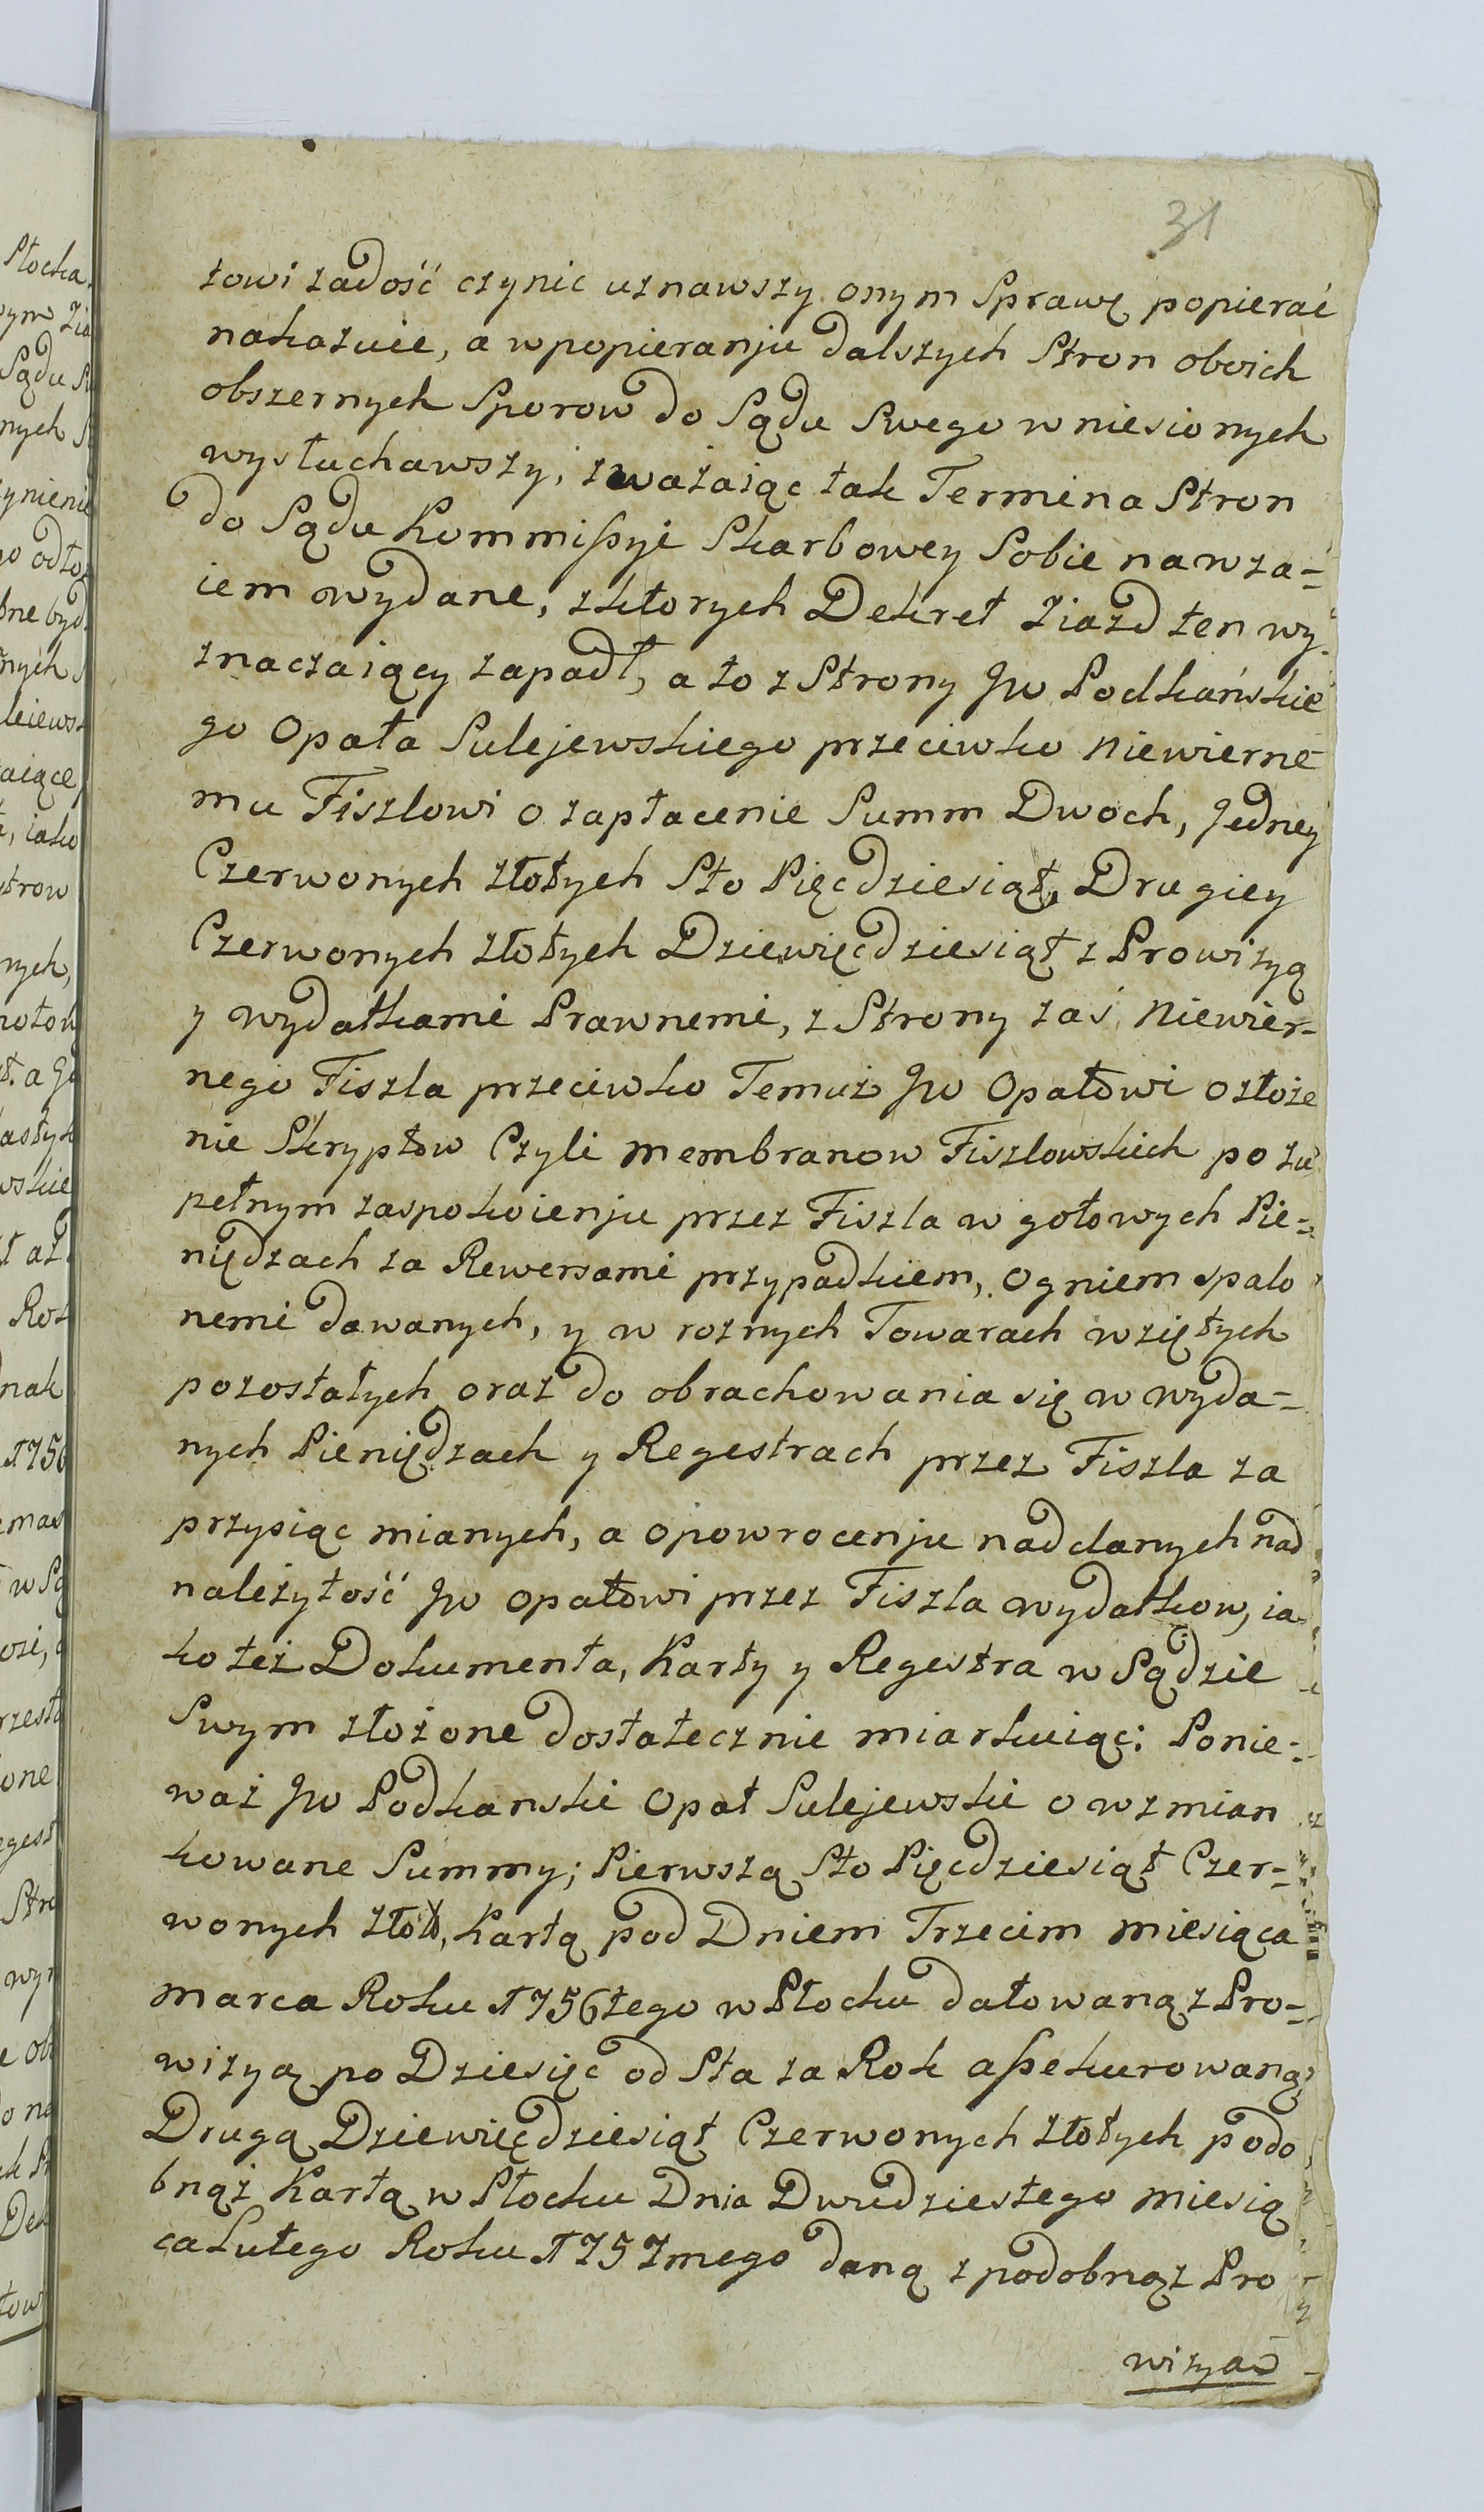 31
towi zadość czynic uznawszy onym Sprawę popierać
nakazuie, a w popieranju dalszych Stron oboich
obszernych Sporow do Sądu Swego wniesionych
wysłuchawszy, zważaiąc tak Termina Stron
do Sądu Kommißyi Skarbowey Sobie nawza=
iem wydane, z ktorych Dekret Ziazd ten wy
znaczaiący zapadł, a to z Strony Jw Podkańskie
go Opata Sulejewskiego przeciwko Niewierne
mu Fiszlowi o zapłacenie Summ Dwoch, Jedney
Czerwonych złotych Sto Pięcdziesiąt, Drugiey
Czerwonych złotych Dziewięcdziesiąt z Prowizyą
y wydatkami Prawnemi, z Strony zaś Niewier=
nego Fiszla przeciwko Temuż Jw Opatowi o złoże
nie Skryptow Czyli membranow Fiszlowskich po zu
pełnym zaspokoienju przez Fiszla w gotowych Pie=
niędzach za Rewersami przypadkiem, Ogniem spalo
nemi dawanych, y w roznych Towarach wziętych
pozostałych oraz do obrachowania się w wyda=
nych Pieniędzach y Regestrach przez Fiszla za
przysiąc mianych, a o powrocenju naddanych nad
należytość Jw Opatowi przez Fiszla wydatkow, ia
ko też Dokumenta, Karty y Regestra w Sądzie
Swym złożone dostatecznie miarkuiąc; Ponie=
waż Jw Podkanski Opat Sulejewski o wzmian
kowane Summy; Pierwszą Sto Pięcdziesiąt Czer=
wonych złot, Kartą pod Dniem Trzecim miesiąca
marca Roku 1756tego w Płocku datowaną z Pro=
wizyą po Dziesięc od Sta za Rok aßekurowaną
Drugą Dziewięcdziesiąt Czerwonych złotych podo
bnąż Kartą w Płocku Dnia Dwudziestego miesią
ca Lutego Roku 1757mego daną z podobnąz Pro
wizyą